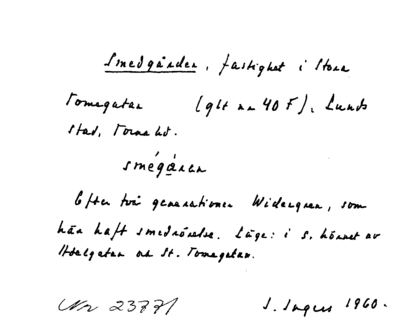 Smedgården, fastighet i Stora
Tomegatan (glt nr 40 F), Lunds
stad, Torna hd.
smégǻren
Efter två generationer Widergren, som
här haft smedrörelse. Läge: i s. hörnet av
Adelgatan och St. Tomegatan.
Nr 23771
S. Ingers 1960.